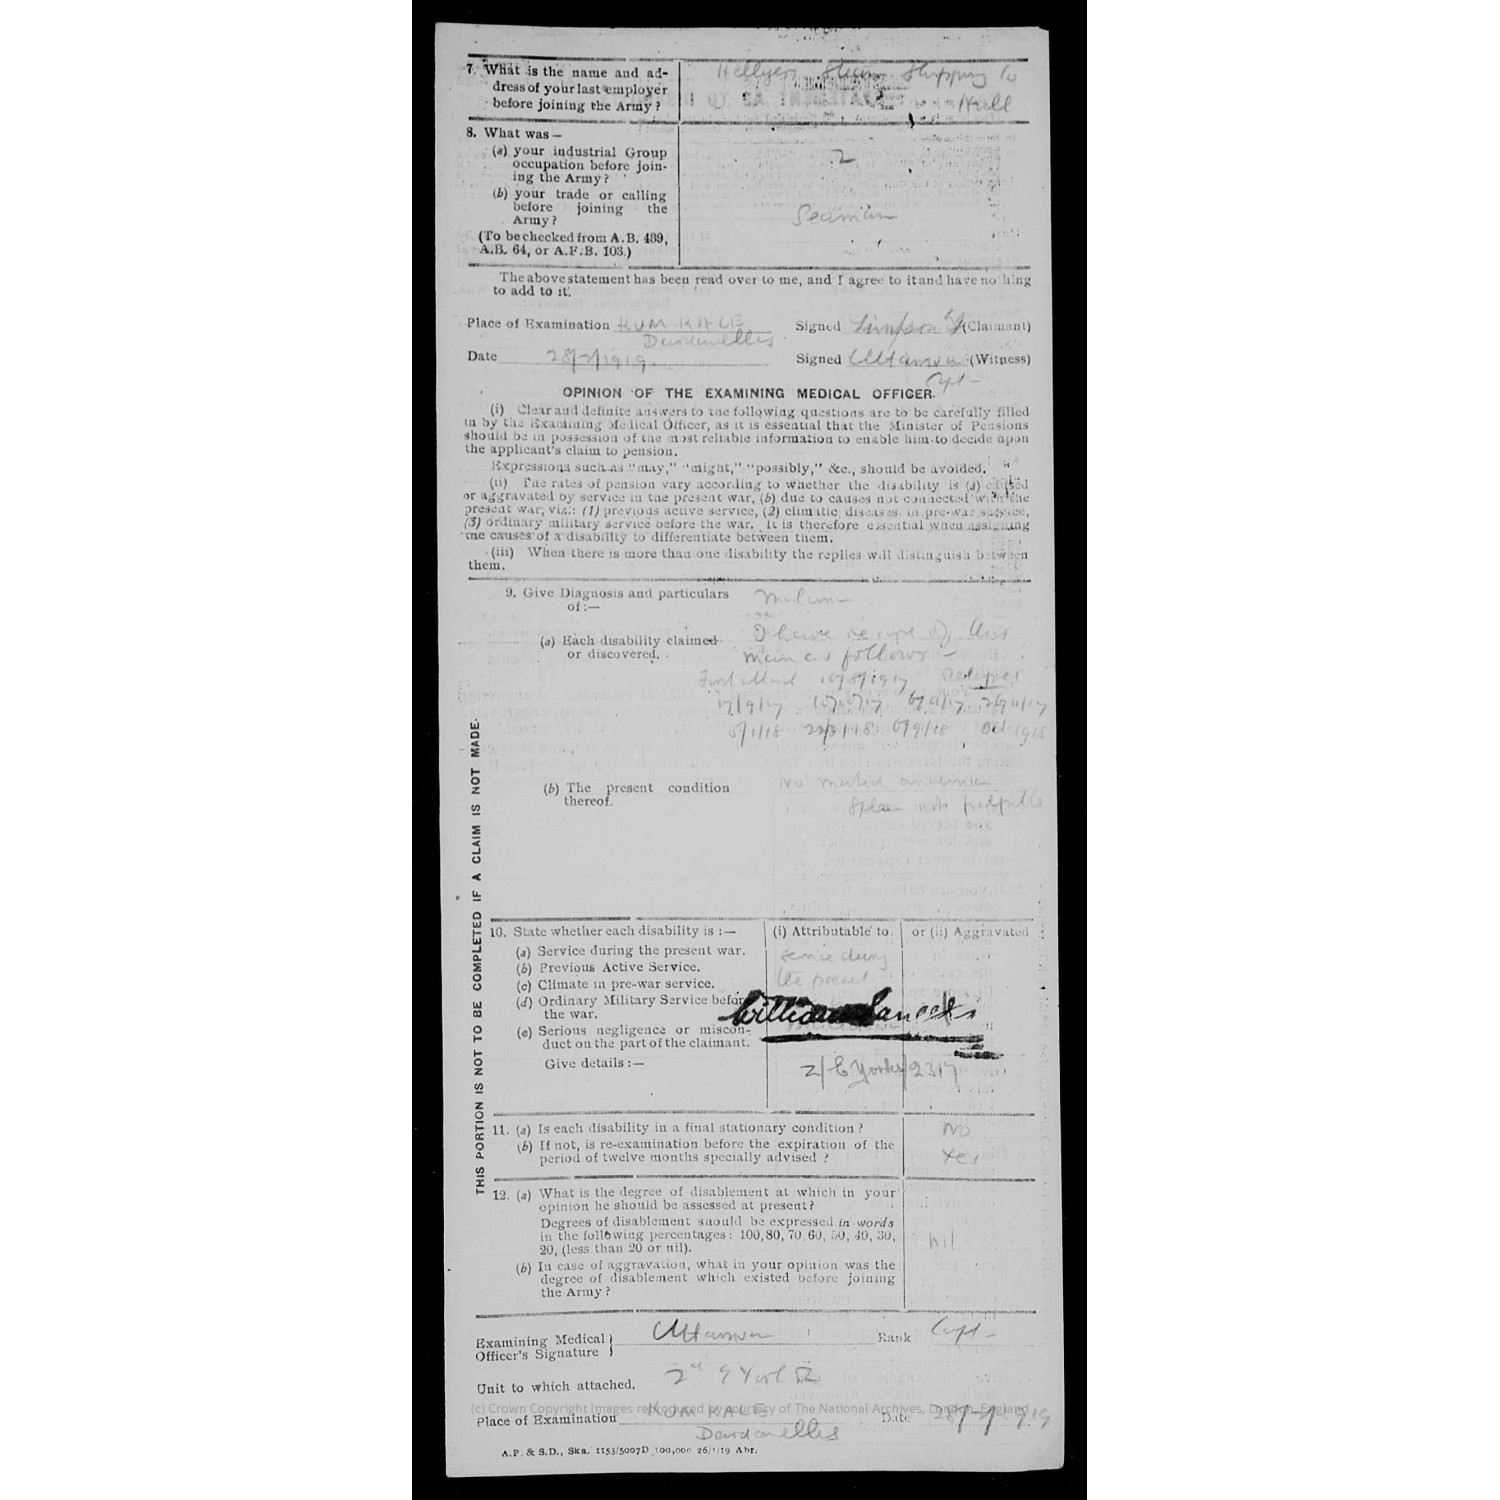 7. What is the name and ad-
dress of your last employer
before joining the Army?
Hellyer Steam Shipping Co
Hull
8. What was—
(a) your industrial Group
occupation before join-
ing the Army?
2
(b) your trade or calling
before joining the
Army?
Seaman
(To be checked from A.B. 439,
A.B. 64, or A.F.B. 103.)
The above statement has been read over to me, and I agree to it and have no hing
to add to it.
Place of Examination KUM KALE
Dardanelles
Signed Simpson (Claimant)
Date 28/2/1919
Signed (Witness)
Capt
OPINION OF THE EXAMINING MEDICAL OFFICER.
(i) Clear and definite answers to the following questions are to be carefully filled
in by the Examining Medical Officer, as it is essential that the Minister of Pensions
should be in possession of the most reliable information to enable him to decide upon
the applicant's claim to pension.
Expressions such as "may," "might," "possibly," &c., should be avoided.
(ii) The rates of pension vary according to whether the disability is (a) caused
or aggravated by service in the present war, (b) due to causes not connected with the
present war, viz.: (1) previous active service, (2) climatic diseases in pre-war service,
(3) ordinary military service before the war. It is therefore essential when assigning
the causes of a disability to differentiate between them.
(iii) When there is more than one disability the replies will distinguish between
them.
9. Give Diagnosis and particulars
of:—
Malaria
(a) Each disability claimed
or discovered.
I have record of this
man as follows—
First attack 16/8/1917 Relapses
17/9/17 6/11/17 26/11/17
5/1/18 22/3/18 6/9/18 Oct 1918
(b) The present condition
thereof.
No marked anaemia
Spleen not palpable
THIS PORTION IS NOT TO BE COMPLETED IF A CLAIM IS NOT MADE.
10. State whether each disability is:—
(i) Attributable to
or (ii) Aggravated
(a) Service during the present war.
(b) Previous Active Service.
(c) Climate in pre-war service.
(d) Ordinary Military Service before
the war.
(e) Serious negligence or miscon-
duct on the part of the claimant.
Give details:—
service during
the present
William
Z/E Yorks/2317
11. (a) Is each disability in a final stationary condition?
No
(b) If not, is re-examination before the expiration of the
period of twelve months specially advised?
Yes
12. (a) What is the degree of disablement at which in your
opinion he should be assessed at present?
Degrees of disablement should be expressed in words
in the following percentages: 100, 80, 70 60, 50, 40, 30,
20, (less than 20 or nil).
nil
(b) In case of aggravation, what in your opinion was the
degree of disablement which existed before joining
the Army?
Examining Medical
Officer's Signature
Rank Capt
Unit to which attached. 2nd E York R
(c) Crown Copyright Images reproduced by courtesy of The National Archives, London, England.
Place of Examination KUM KALE
Dardanelles
Date 28/2/1919
A.P. & S.D., Ska. 1153/5007D 100,000 26/1/19 Abr.